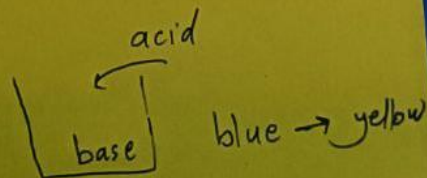 acid
base
blue → yellow